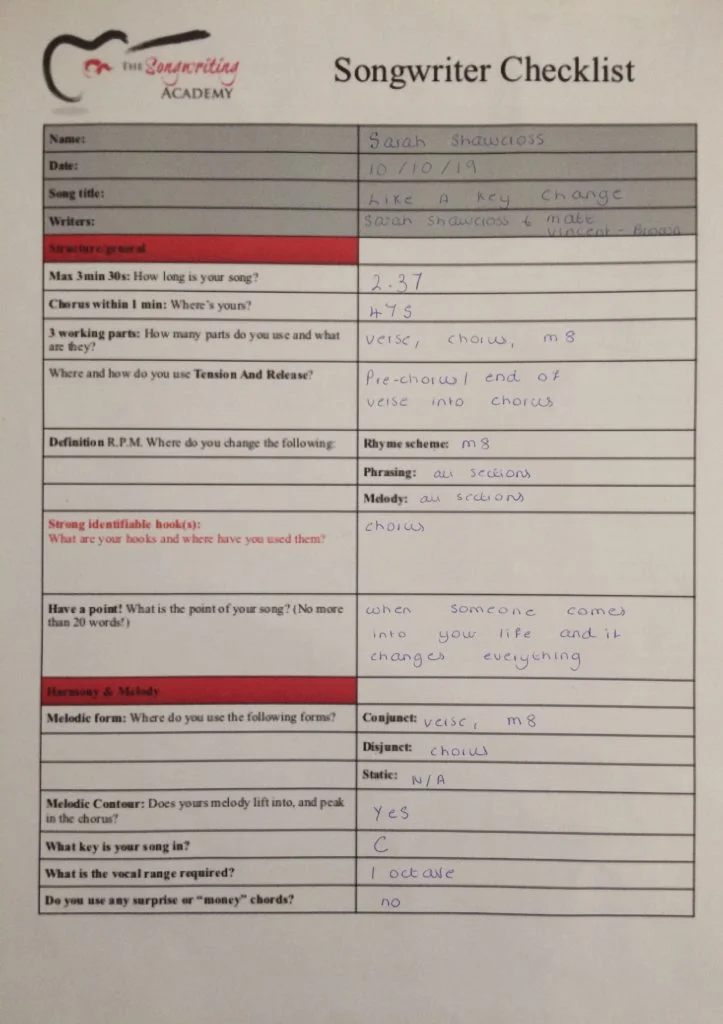 THE Songwriting
ACADEMY
Songwriter Checklist
Name: Sarah Shawcross
Date: 10/10/19
Song title: Like A Key Change
Writers: Sarah Shawcross & Matt
Vincent-Brown
Structure/general
Max 3min 30s: How long is your song? 2.37
Chorus within 1 min: Where's yours? 47s
3 working parts: How many parts do you use and what
are they?
verse, chorus, m8
Where and how do you use Tension And Release?
Pre-chorus/ end of
verse into chorus
Definition R.P.M. Where do you change the following: Rhyme scheme: m8
Phrasing: all sections
Melody: all sections
Strong identifiable hook(s):
What are your hooks and where have you used them?
chorus
Have a point! What is the point of your song? (No more
than 20 words!)
when someone comes
into your life and it
changes everything
Harmony & Melody
Melodic form: Where do you use the following forms? Conjunct: verse, m8
Disjunct: chorus
Static: N/A
Melodic Contour: Does yours melody lift into, and peak
in the chorus?
Yes
What key is your song in? C
What is the vocal range required? 1 octave
Do you use any surprise or "money" chords? no